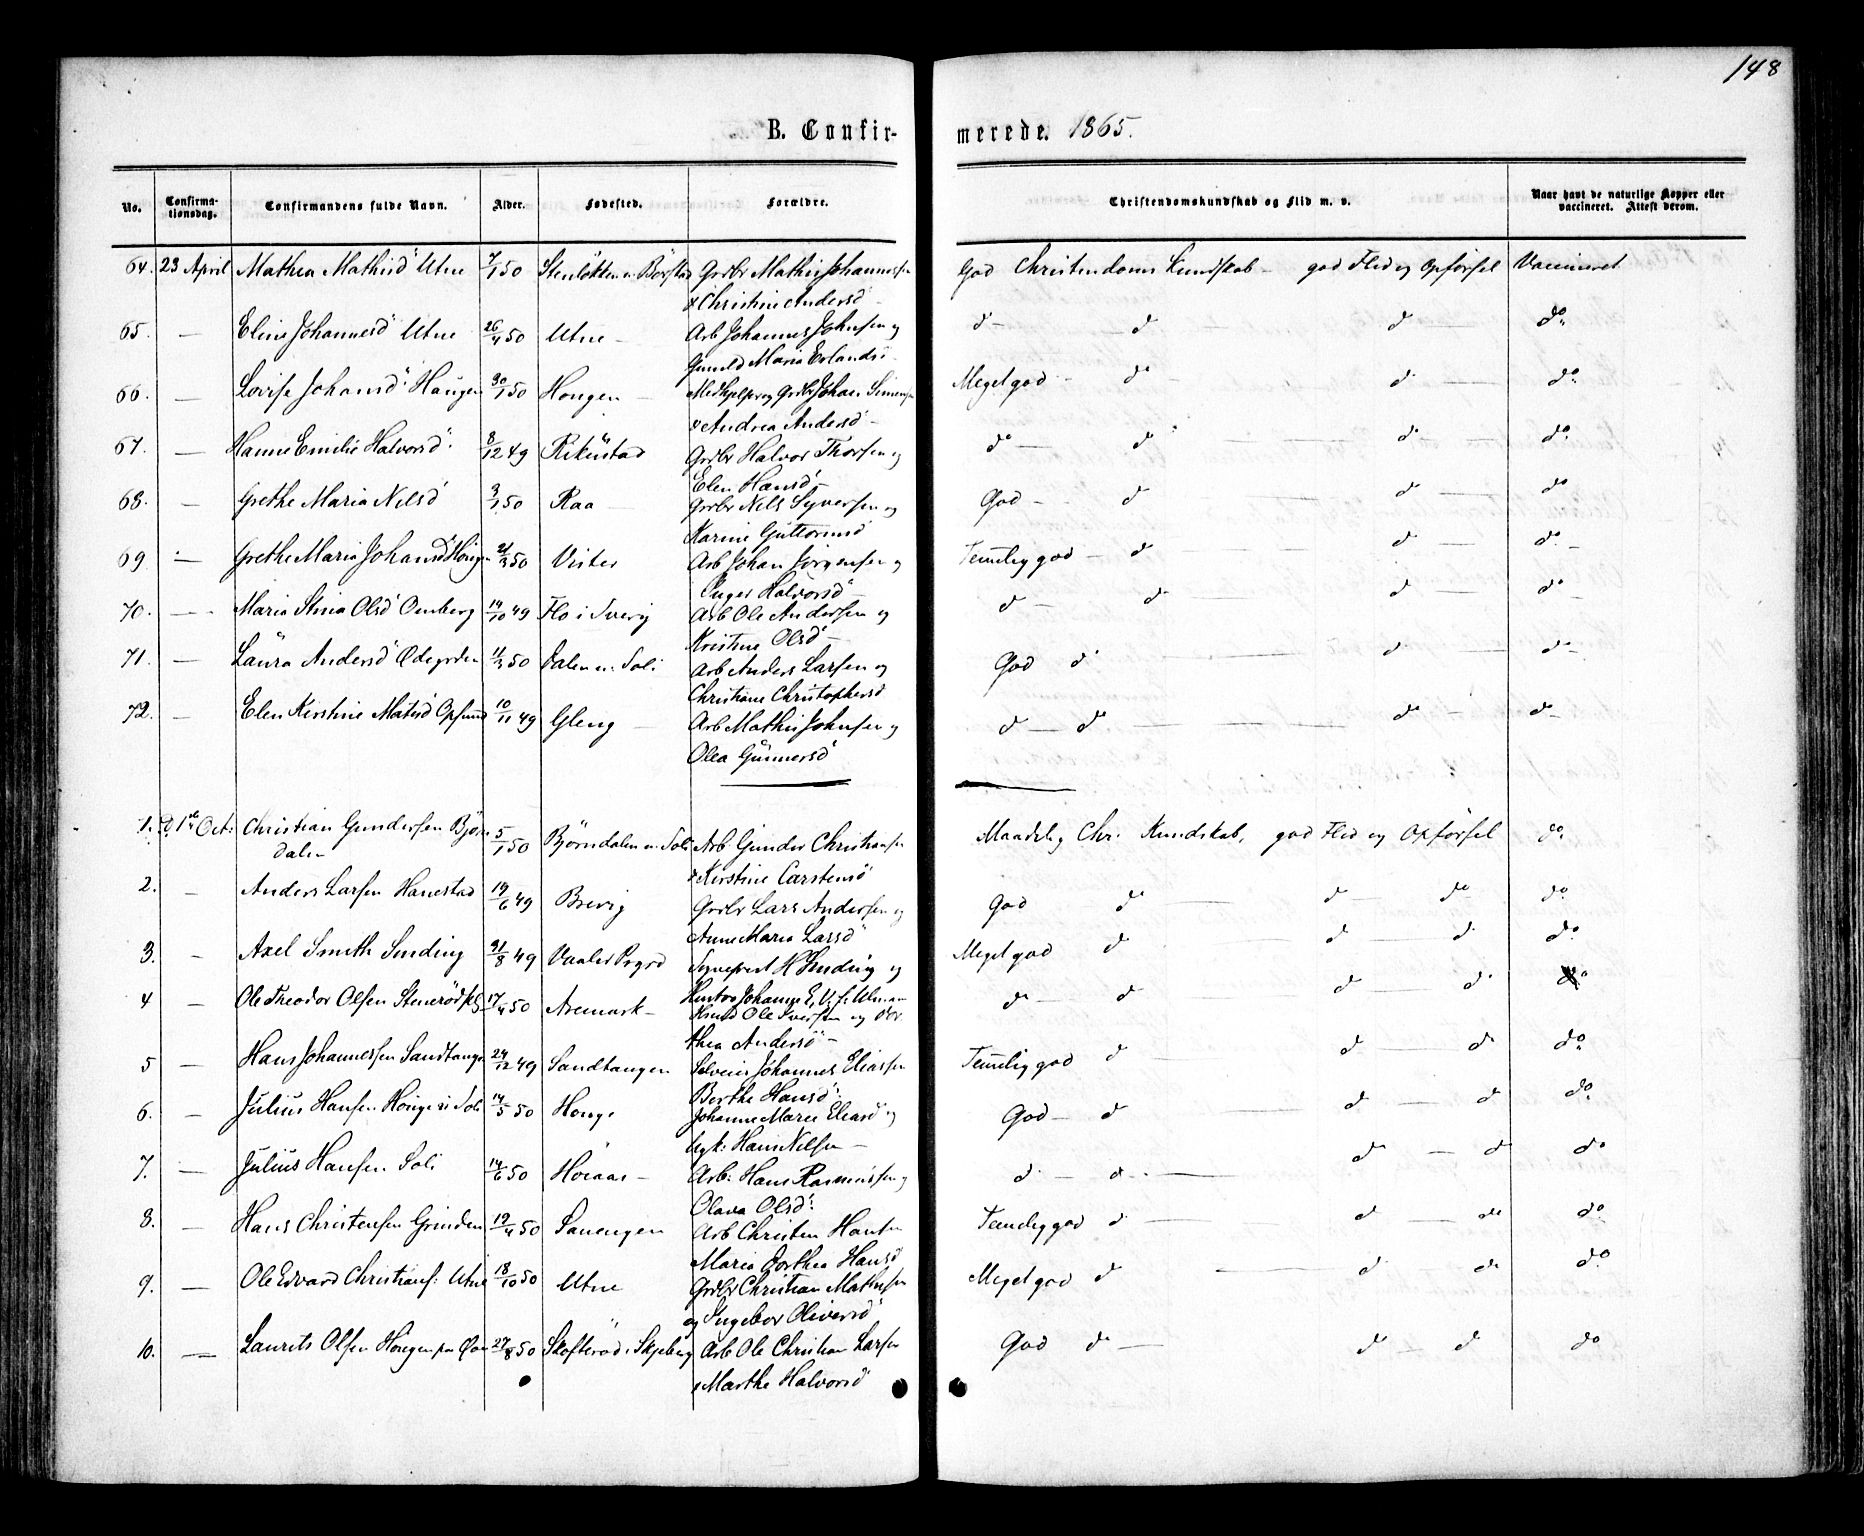 148
B. Confirmerede. 1865.
No. Confirmationsdag. Confirmandens fulde Navn. Alder. Fødested. Forældre. Christendomskundskab og Flid m. v. Naar havt de naturlige Kopper eller vaccineret. Attest derom.
64. 23 April Mathea Mathisd Utne 7/1 50 Grdbr Mathis Johannessen God Christendoms Kundskab - god Flid og Opförsel Vaccineret
& Christine Andersd -
65. — Elina Johannesd Utne 26/4 50 Utne - Arb Johannes Johnsen og d - d d do
Gunild Maria Erlandsd -
66. — Lovise Johansd Haugen 30/1 50 Hougen - Medhjelper og Grdbr Johan Simensen Meget god - do d do
& Andrea Andersd -
67. — Hanne Emilie Halvorsd 8/12 49 Rikustad Grdbr Halvor Thorsen og do — do do do
Elen Hansd -
68. — Grethe Maria Nilsd 3/1 50 Raa - Grdbr Nils Syversen og God - d do do
Karine Guttormsd
69 — Grethe Maria Johansd 21/3 50 Vister Arb Johan Jörgensen og Temelig god - d d do
Inger Halvorsd -
70. — Maria Stina Olsd 14/10 49 Flo i Sverig Arb Ole Andersen og d - do d do
Kristine Olsd -
71. — Laura Andersd Ødegrden 11/3 50 Dalen u. Soli Arb Anders Larsen og God d d do
Christiane Christophersd
72. — Elen Kirstine Matisd Opsund 10/11 49 Gleng - Arb Mathis Johnsen og d — do do do
Olea Gunnersd
1. D. 1ste Oct: Christian Gundersen Björn 5/1 50 Björndalen u. Soli Arb. Gunder Christiansen Maadelig Chr. Kundskab, god Flid og Opförsel do
dalen & Kirstine Carstensd
2. — Anders Larsen Hanestad 19/6 49 Brevig Grdbr Lars Andersen og God d d do do
Anne Maria Larsd
3. — Axel Smith Sinding 31/8 49 Vaaler Prgrd Sognepræst H Sinding og Meget god d d d do
4 — Ole Theodor Olsen 17/4 50 Aremark - do - d d d do
Knud Ole Iversen og Dor
thea Andersd -
5 — Hans Johannessen Sandtangen 24/12 49 Sandtangen Selveier Johannes Eliassen Temelig god d d d do
Berthe Hansd
6. — Julius Hansen Houge u Soli 14/5 50 Houge Johanne Marie Eliasd og God - d d d do
Ugk: Hans Nilsen -
7. — Julius Hansen Soli 14/6 50 Höiaas - Arb: Hans Rasmussen og d. - d. d d do
Olava Olsd:
8. — Hans Christensen Grinden 19/4 50 Arb Christen Hansen Temelig god d d do do
Maria Dorthea Hansd
9. — Ole Edvard Christians: Utne 18/10 50 Utne Grdbr Christian Mathisen Meget god d d do do
og Ingebor Oliversd
10. — Laurits Olsen Hougen 27/8 50 Skofteröd i Skjeberg Arb Ole Christian Larsen God do - do d do
& Marthe Halvorsd